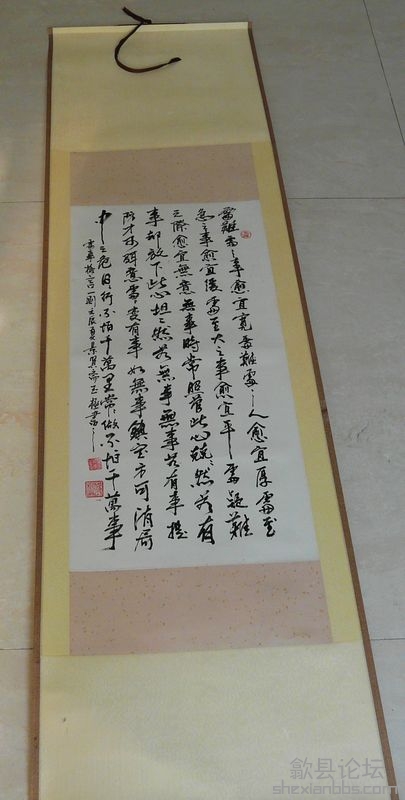 處難處之事愈宜寬處難處之人愈宜厚處至
急之事愈宜緩處至大之事愈宜平處疑難
之際愈宜無意無事時常照管此心兢兢然若有
事却放下此心坦坦然若無事無事若有事提
防才可弭意外之變有事如無事鎮定方可消局
中之危日行不怕千萬里常做不怕千萬事
格言一則壬辰夏
歙县论坛
shexianbbs.com